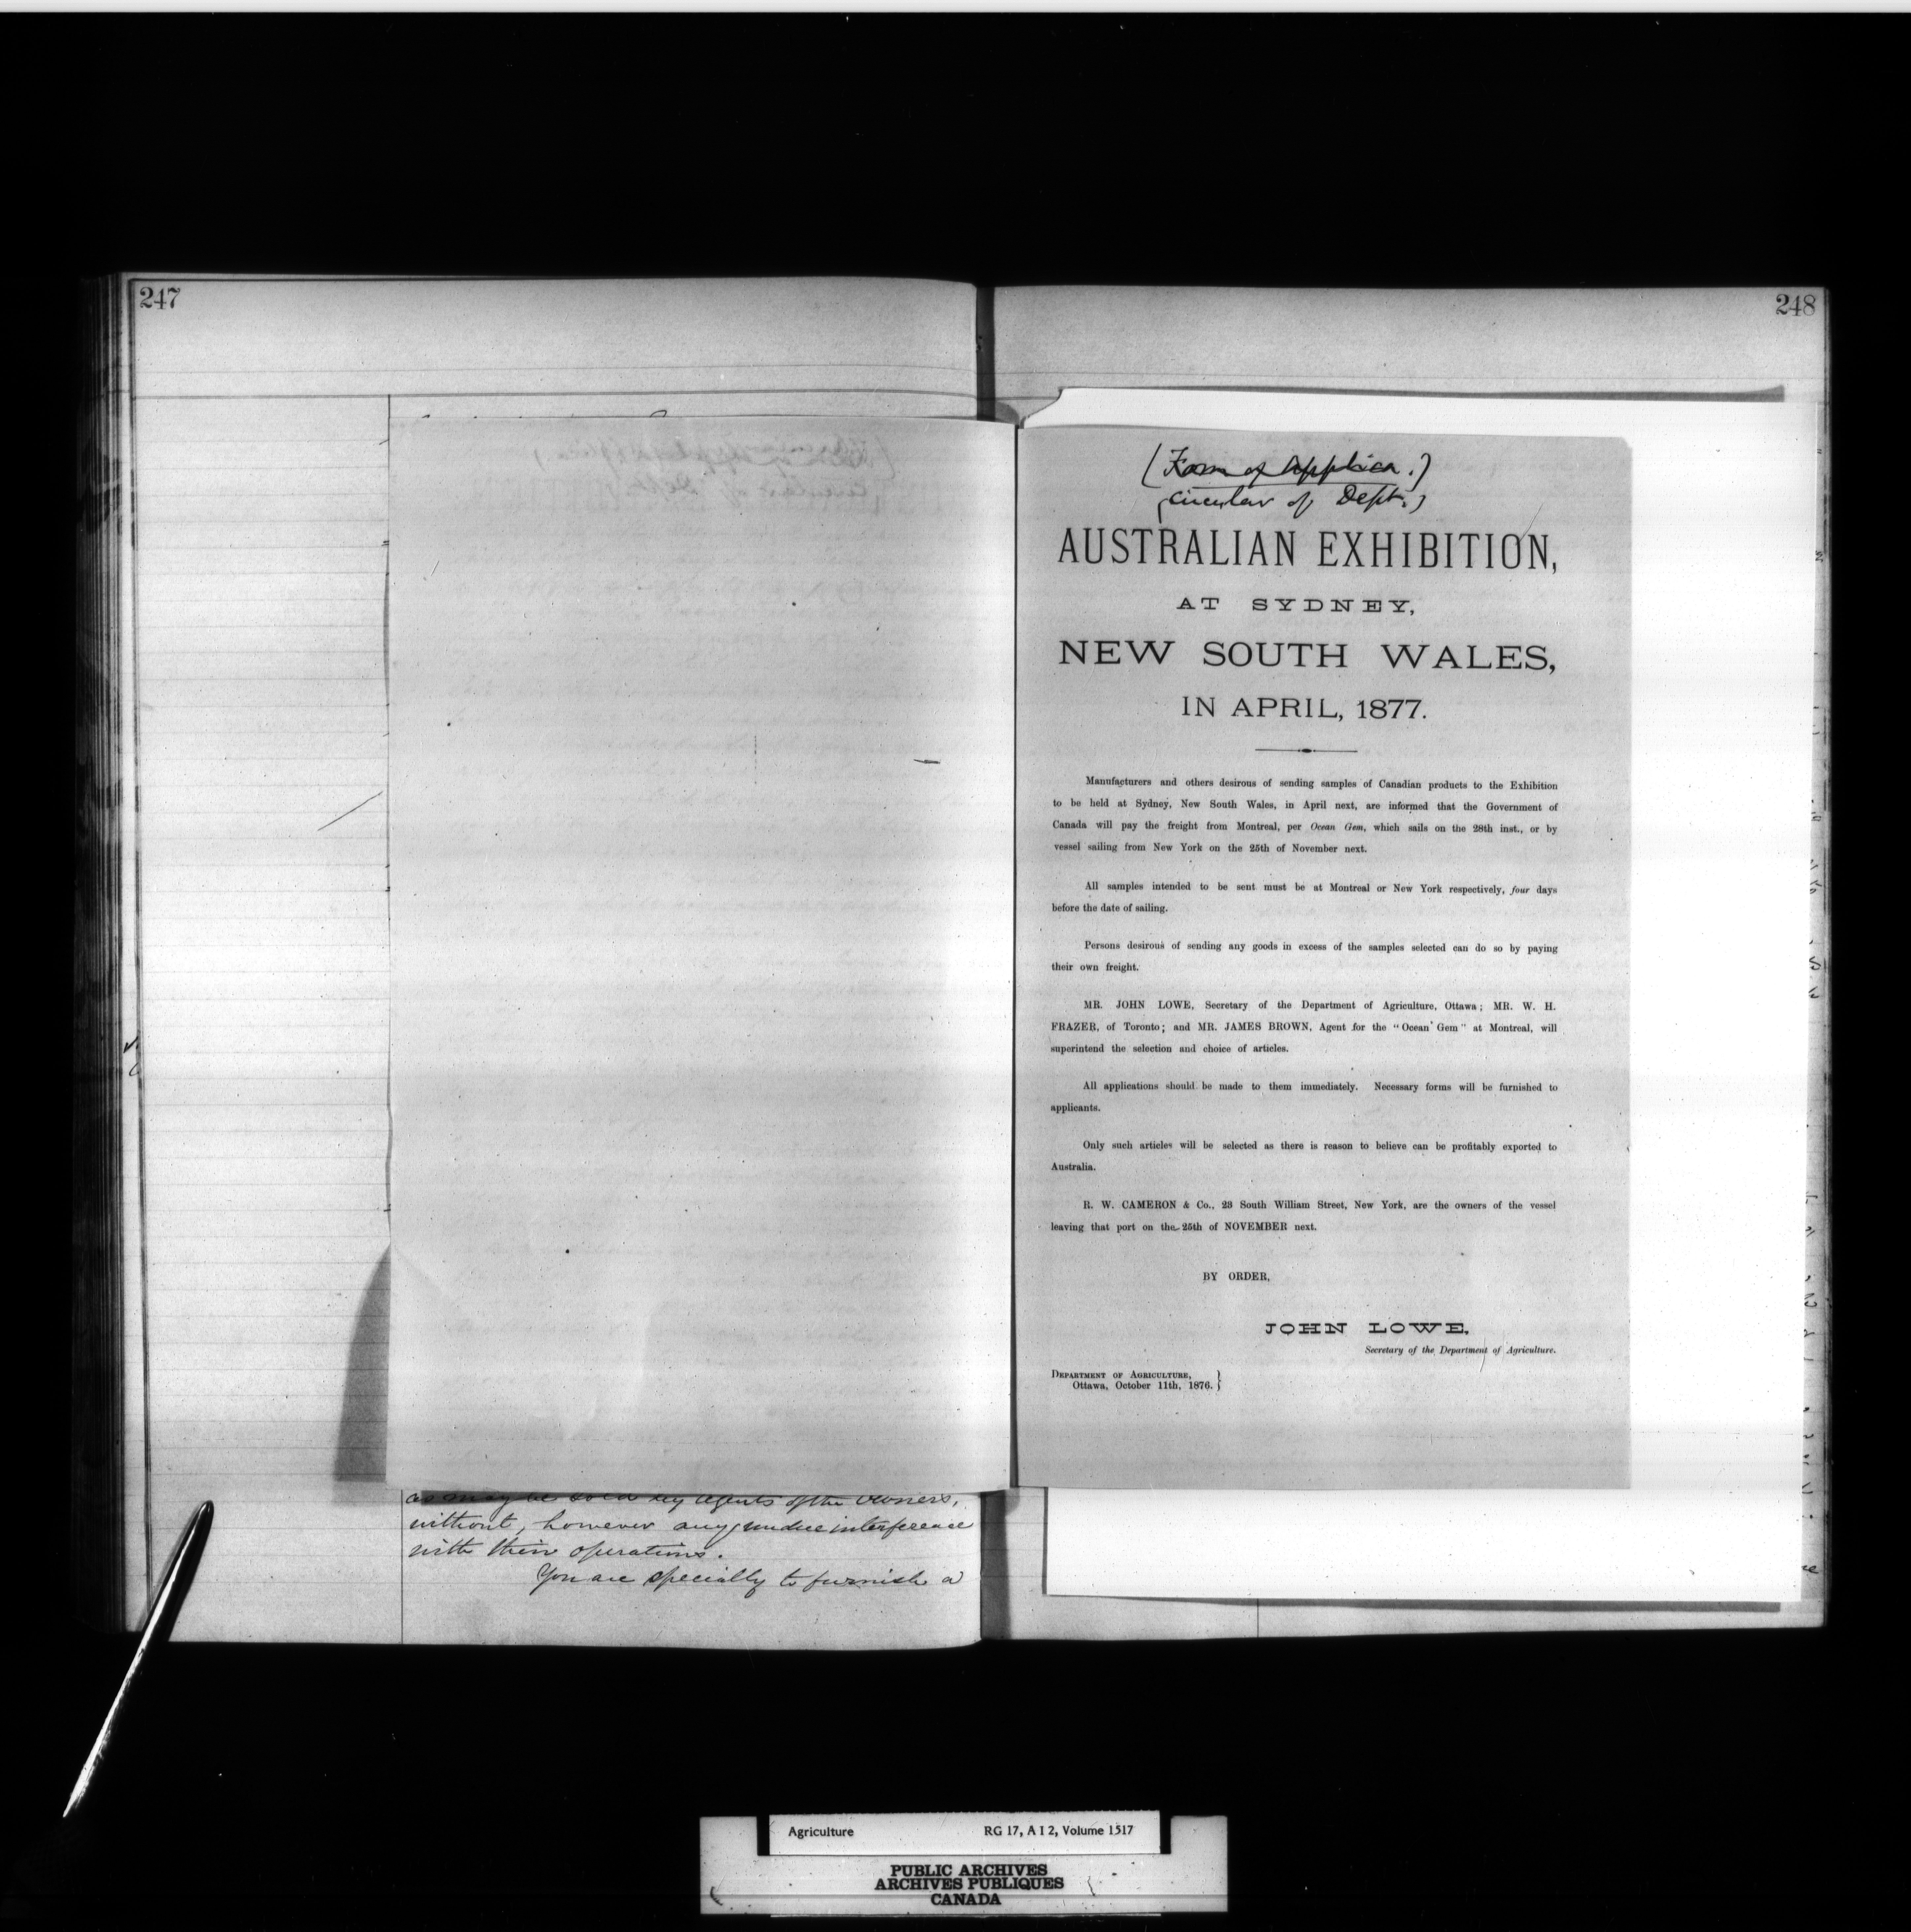 247
248
(Form of Applica.)
(Circular of Dept.)
AUSTRALIAN EXHIBITION,
AT SYDNEY,
NEW SOUTH WALES,
IN APRIL, 1877.
Manufacturers and others desirous of sending samples of Canadian products to the Exhibition
to be held at Sydney, New South Wales, in April next, are informed that the Government of
Canada will pay the freight from Montreal, per Ocean Gem, which sails on the 28th inst., or by
vessel sailing from New York on the 25th of November next.
All samples intended to be sent must be at Montreal or New York respectively, four days
before the date of sailing.
Persons desirous of sending any goods in excess of the samples selected can do so by paying
their own freight.
MR. JOHN LOWE, Secretary of the Department of Agriculture, Ottawa; MR. W. H.
FRAZER, of Toronto; and MR. JAMES BROWN, Agent for the "Ocean Gem" at Montreal, will
superintend the selection and choice of articles.
All applications should be made to them immediately. Necessary forms will be furnished to
applicants.
Only such articles will be selected as there is reason to believe can be profitably exported to
Australia.
R. W. CAMERON & Co., 23 South William Street, New York, are the owners of the vessel
leaving that port on the 25th of NOVEMBER next.
BY ORDER,
JOHN LOWE,
Secretary of the Department of Agriculture.
DEPARTMENT OF AGRICULTURE, }
Ottawa, October 11th, 1876. }
as may be sold by agents of the owners,
without, however any undue interference
with their operations.
You are specially to furnish a
Agriculture RG 17, A I 2, Volume 1517
PUBLIC ARCHIVES
ARCHIVES PUBLIQUES
CANADA